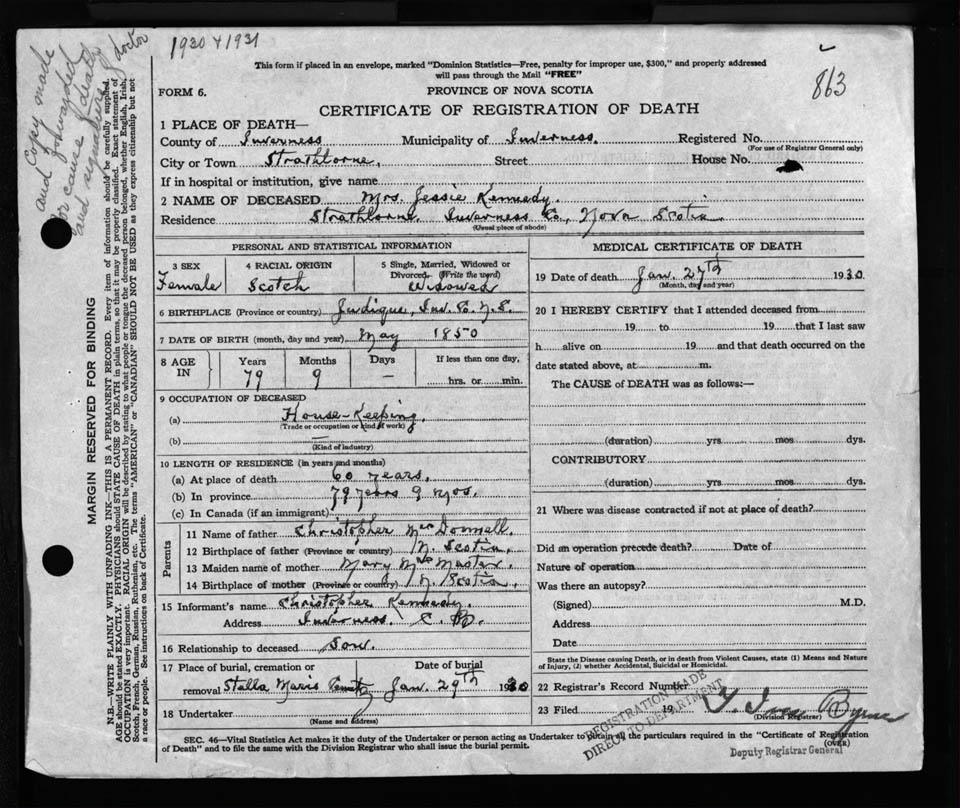 1930 & 1931
863
and Copy made
forwarded
for cause of death
and signature
doctor
This form if placed in an envelope, marked "Dominion Statistics—Free, penalty for improper use, $300," and properly addressed
will pass through the Mail "FREE"
FORM 6.
PROVINCE OF NOVA SCOTIA
CERTIFICATE OF REGISTRATION OF DEATH
1 PLACE OF DEATH—
County of Inverness Municipality of Inverness. Registered No.
(For use of Registrar General only)
City or Town Strathlorne, Street House No.
If in hospital or institution, give name
2 NAME OF DECEASED Mrs. Jessie Kennedy.
Residence Strathlorne. Inverness Co., Nova Scotia
(Usual place of abode)
PERSONAL AND STATISTICAL INFORMATION
3 SEX 4 RACIAL ORIGIN 5 Single, Married, Widowed or
Divorced (Write the word)
Female Scotch Widowed
6 BIRTHPLACE (Province or country) Judique, Inv. Co. N.S.
7 DATE OF BIRTH (month, day and year) May 1850
8 AGE IN Years Months Days If less than one day,
79 9 — hrs. or min.
9 OCCUPATION OF DECEASED
(a) House-Keeping.
(Trade or occupation or kind of work)
(b) —
(Kind of industry)
10 LENGTH OF RESIDENCE (in years and months)
(a) At place of death 60 years.
(b) In province 79 years 9 mos.
(c) In Canada (if an immigrant)
Parents
11 Name of father Christopher McDonnell.
12 Birthplace of father (Province or country) N. Scotia.
13 Maiden name of mother Mary McMaster.
14 Birthplace of mother (Province or country) N. Scotia.
15 Informant's name Christopher Kennedy.
Address Inverness. C. B.
16 Relationship to deceased Son.
17 Place of burial, cremation or Date of burial
removal Stella Maris Jan. 29th 1930
18 Undertaker
(Name and address)
MEDICAL CERTIFICATE OF DEATH
19 Date of death Jan. 27th 1930.
(Month, day and year)
20 I HEREBY CERTIFY that I attended deceased from
19 to 19 that I last saw
h alive on 19 and that death occurred on the
date stated above, at m.
The CAUSE of DEATH was as follows:—
(duration) yrs. mos dys.
CONTRIBUTORY
(duration) yrs. mos dys.
21 Where was disease contracted if not at place of death?
Did an operation precede death? Date of
Nature of operation
Was there an autopsy?
(Signed) M.D.
Address
Date
State the Disease causing Death, or in death from Violent Causes, state (1) Means and Nature
of Injury, (2) whether Accidental, Suicidal or Homicidal.
22 Registrar's Record Number
23 Filed 19
(Division Registrar)
REGISTRATION MADE
DIRECT TO DEPARTMENT
Deputy Registrar General
SEC. 46—Vital Statistics Act makes it duty of the Undertaker or person acting as Undertaker to obtain all the particulars required in the "Certificate of Registration
of Death" and to file the same with the Division Registrar who shall issue the burial permit.
(OVER)
MARGIN RESERVED FOR BINDING
N.B.—WRITE PLAINLY WITH UNFADING INK—THIS IS A PERMANENT RECORD. Every item of information should be carefully supplied.
AGE should be stated EXACTLY. PHYSICIANS should STATE CAUSE OF DEATH in plain terms, so that it may be properly classified. Exact statement of
OCCUPATION is very important. RACIAL ORIGIN will be described by stating to what people or tongue the deceased person belonged, whether English, Irish,
Scotch, French, German, Russian, Ruthenian, etc. The terms "AMERICAN" or "CANADIAN" SHOULD NOT BE USED as they express citizenship but not
a race or people. See instructions on back of Certificate.